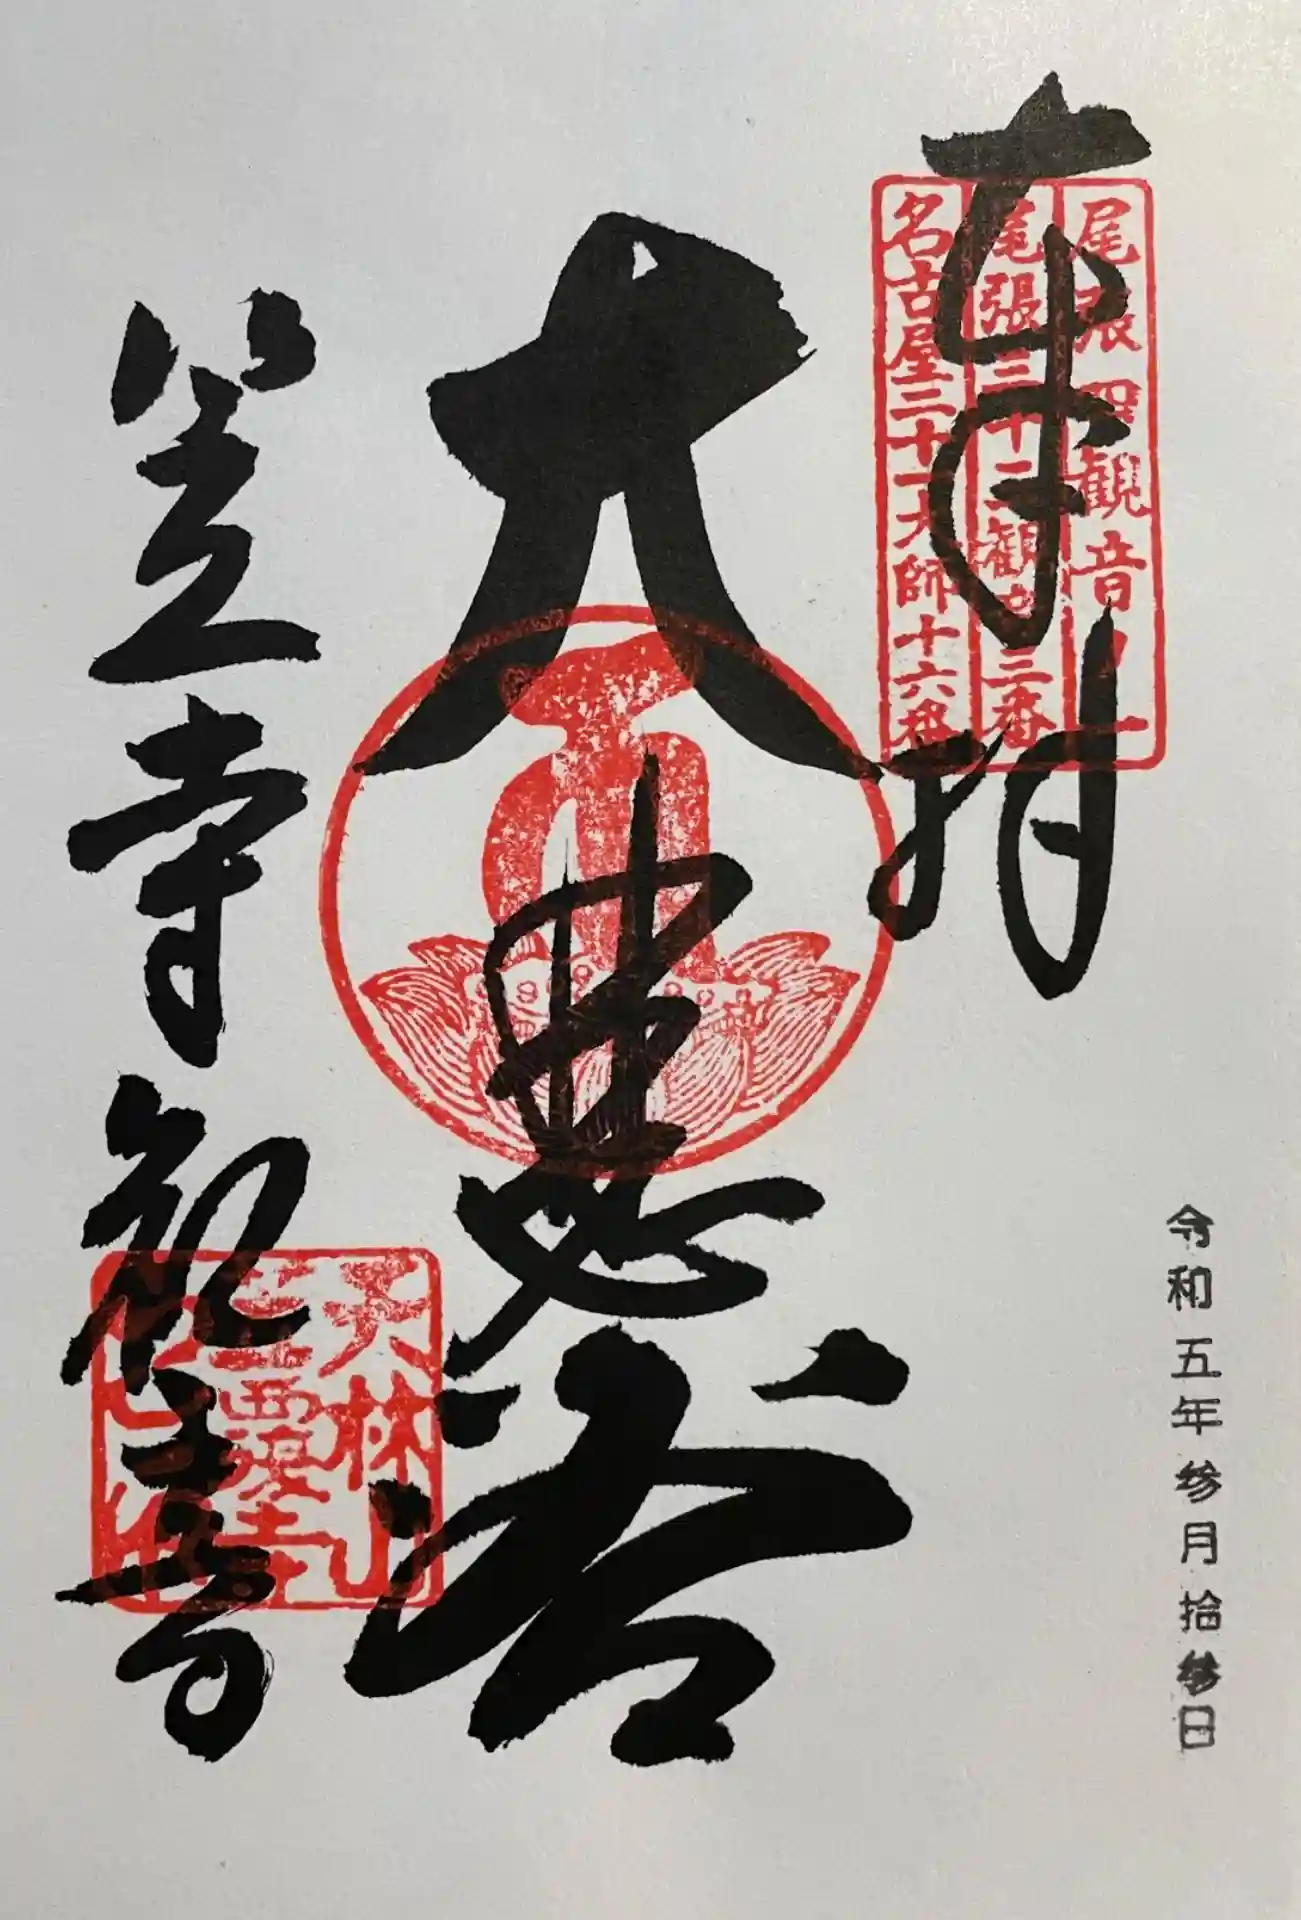 奉拝
尾張四観音ノ一
尾張三十三観音三番
名古屋二十一大師十六番
大悲閣
笠寺観音
天林山
笠覆寺
令和五年参月拾参日